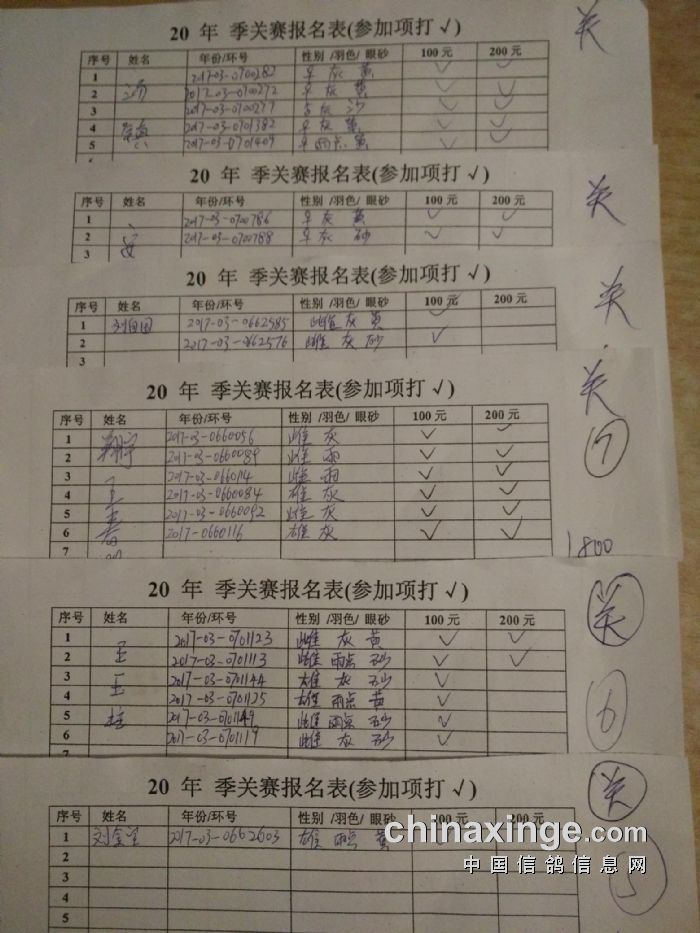 20 年 季关赛报名表(参加项打 √)
关
序号 姓名 年份/环号 性别 /羽色/ 眼砂 100 元 200 元
1 2017-03-0700282 灰 黄 √ √
2 2017-03-0700272 灰 黄 √ √
3 2017-03-0700277 灰 沙 √ √
4 2017-03-0701382 灰 黄 √ √
5 2017-03-0701409 雨点 黄 √ √
20 年 季关赛报名表(参加项打 √)
关
序号 姓名 年份/环号 性别 /羽色/ 眼砂 100 元 200 元
1 2017-03-0700786 灰 黄 √ √
2 2017-03-0700788 灰 砂 √ √
3
20 年 季关赛报名表(参加项打 √)
关
序号 姓名 年份/环号 性别 /羽色/ 眼砂 100 元 200 元
1 2017-03-0662585 雌 灰 黄 √
2 2017-03-0662576 雌 灰 砂 √
3
20 年 季关赛报名表(参加项打 √)
关
序号 姓名 年份/环号 性别 /羽色/ 眼砂 100 元 200 元
1 翔宇 2017-03-0660056 雌 灰 √ √
2 2017-03-0660089 雌 雨 √ √
3 2017-03-0660114 雌 雨 √ √
4 王 2017-03-0660084 雄 灰 √ √
5 2017-03-0660092 雌 灰 √ √
6 2017-0660116 雄 灰 √ √
7
1800
20 年 季关赛报名表(参加项打 √)
关
序号 姓名 年份/环号 性别 /羽色/ 眼砂 100 元 200 元
1 王 2017-03-0701123 雌 灰 黄 √ √
2 2017-03-0701113 雌 雨点 砂 √ √
3 王 2017-03-0701144 雄 灰 砂 √
4 2017-03-0701125 雄 雨点 黄 √
5 柱 2017-03-0701149 雌 雨点 砂 √
6 2017-03-0701119 雌 灰 砂 √
7
6
20 年 季关赛报名表(参加项打 √)
关
序号 姓名 年份/环号 性别 /羽色/ 眼砂 100 元 200 元
1 2017-03-0662603 雄 黄 √
2
3
4
5
5
chinaxinge.com
中国信鸽信息网